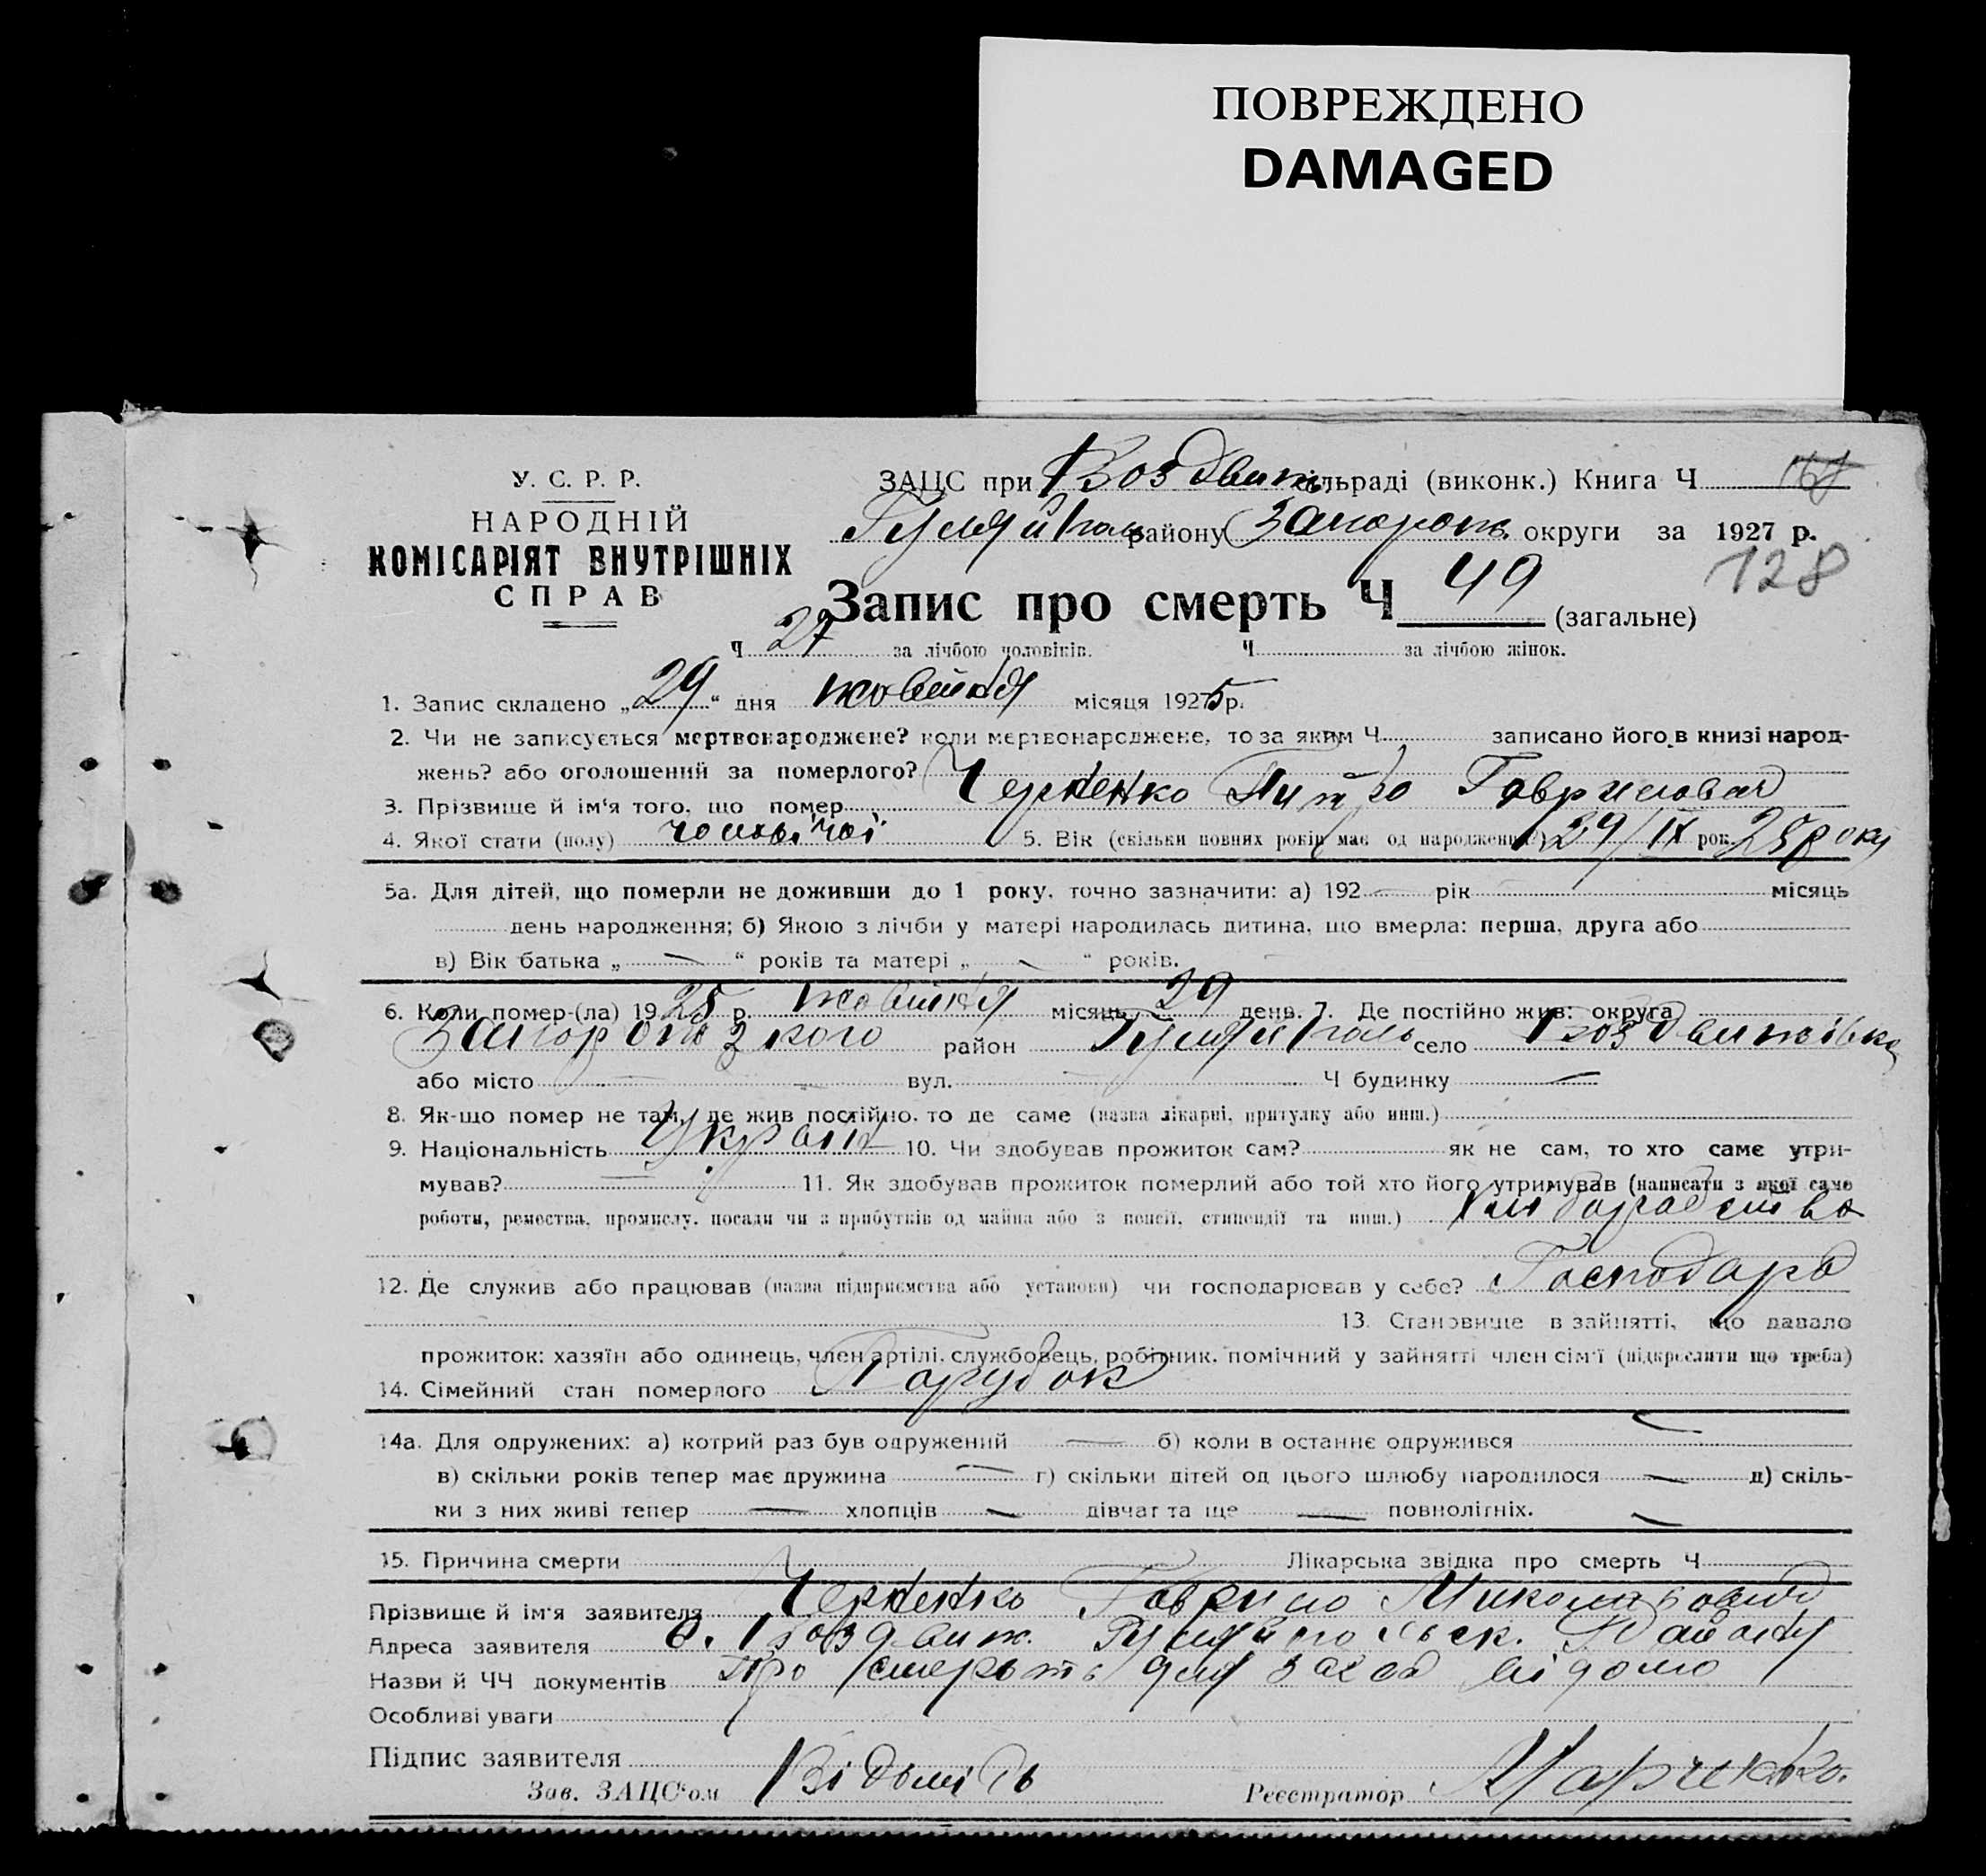 ПОВРЕЖДЕНО
DAMAGED
У. С. Р. Р.
НАРОДНІЙ
КОМІСАРІЯТ ВНУТРІШНІХ
СПРАВ
ЗАЦС при Воздвиж. сільраді (виконк.) Книга Ч
Гуляйполь району Запорож. округи за 1927 р.
128
Запис про смерть Ч 49 (загальне)
Ч 27 за лічбою чоловіків. Ч за лічбою жінок.
1. Запис складено „29“ дня жовтня місяця 1925 р.
2. Чи не записується мертвонароджене? коли мертвонароджене, то за яким Ч записано його в книзі народ-
жень? або оголошений за померлого?
3. Прізвище й ім'я того, що помер Черненко Питро Гаврилович
4. Якої стати (полу) чоловічої 5. Вік (скільки повних років має од народження) 29/IX рок. 25 року
5а. Для дітей, що померли не доживши до 1 року, точно зазначити: а) 192 — рік місяць
день народження; б) Якою з лічби у матері народилась дитина, що вмерла: перша, друга або
в) Вік батька „ — “ років та матері „ — “ років.
6. Коли помер-(ла) 1925 р. жовтня місяць 29 день. 7. Де постійно жив: округа
Запорожського район Гуляйполь село Воздвижівка
або місто — вул. — Ч будинку —
8. Як-що помер не там, де жив постійно, то де саме (назва лікарні, притулку або инш.)
9. Національність Україн 10. Чи здобував прожиток сам? як не сам, то хто саме утри-
мував? — 11. Як здобував прожиток померлий або той хто його утримував (написати з якої саме
роботи, ремества, промислу, посади чи з прибутків од майна або з пенсії, стипендії та инш.) Хліборобство
12. Де служив або працював (назва підприємства або установи) чи господарював у себе? Господарв
13. Становище в зайнятті, що давало
прожиток: хазяїн або одинець, член артілі, службовець, робітник, помічний у зайнятті член сім'ї (підкреслити що треба)
14. Сімейний стан померлого Парубок
14а. Для одружених: а) котрий раз був одружений — б) коли в останнє одружився —
в) скільки років тепер має дружина — г) скільки дітей од цього шлюбу народилося — д) скіль-
ки з них живі тепер — хлопців — дівчат та ще — повнолітніх. —
15. Причина смерти Лікарська звідка про смерть Ч
Прізвище й ім'я заявителя Черненко Гаврило Миколайович
Адреса заявителя с. Воздвиж. Гуляйпольск. Району
Назви й ЧЧ документів про смерть для ЗАЦС відомо
Особливі уваги
Підпис заявителя
Зав. ЗАЦС'ом Реєстратор Марченко.